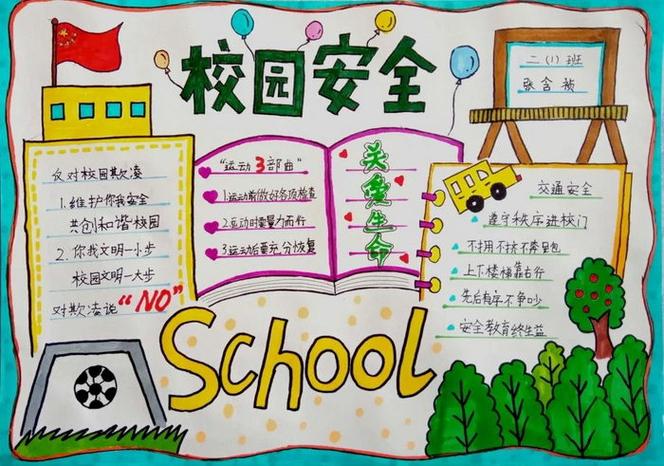 校园安全
二(1)班
张含祯
反对校园欺凌
1.维护你我安全
共创和谐校园
2.你我文明一小步
校园文明一大步
对欺凌说"NO"
"运动3部曲"
1运动前做好各项检查
2.运动时要量力而行
3运动后要充分恢复
关爱生命
交通安全
遵守秩序进校门
不拥不挤不背包
上下楼梯靠右行
先后有序不争吵
安全教育终生益
School